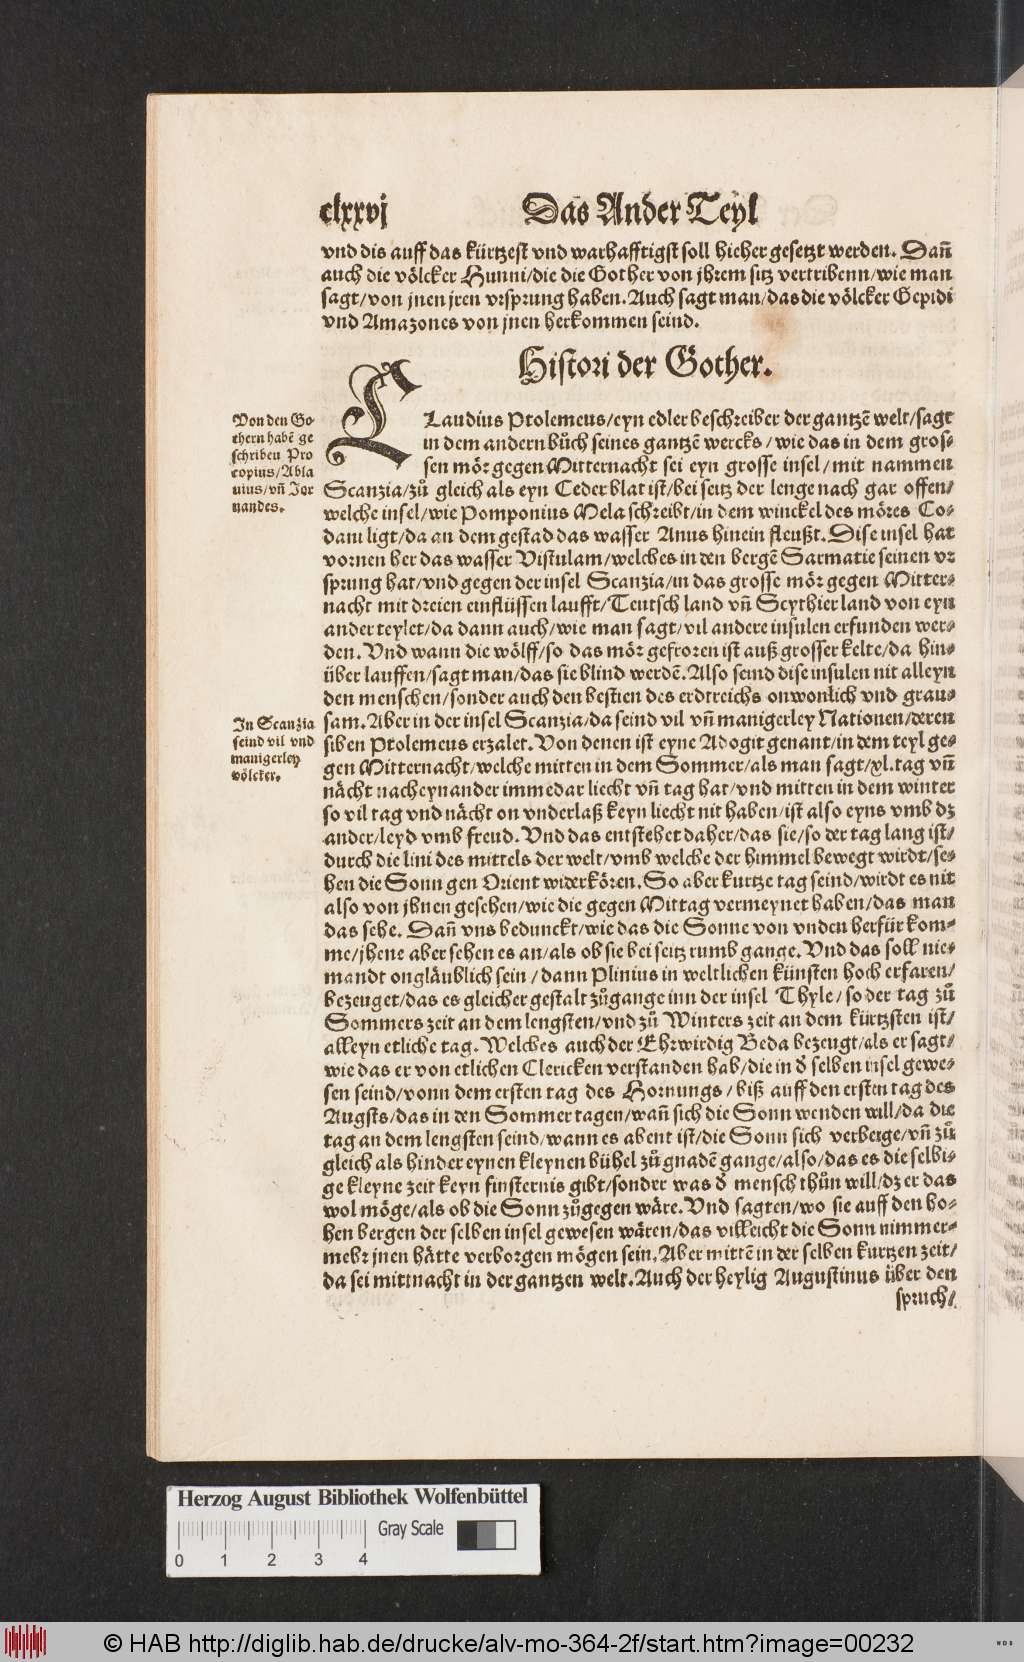 clxxvj Das Ander Teyl
vnd dis auff das kürtzest vnd warhafftigst soll hieher gesetzt werden. Dañ
auch die völcker Hunni/die die Gother von jhrem sitz vertribenn/wie man
sagt/von jnen jren vrsprung haben. Auch sagt man/das die völcker Gepidi
vnd Amazones von jnen herkommen seind.
Histori der Gother.
Von den Go
thern habẽ ge
schriben Pro
copius/Abla
uius/vñ Jor
nandes.
CLaudius Ptolemeus/eyn edler beschreiber der gantzẽ welt/sagt
in dem andern bůch seines gantzẽ wercks/wie das in dem gros-
sen mör gegen Mitternacht sei eyn grosse insel/mit nammen
Scanzia/zů gleich als eyn Ceder blat ist/bei seitz der lenge nach gar offen/
welche insel/wie Pomponius Mela schreibt/in dem winckel des möres Co-
dani ligt/da an dem gestad das wasser Anus hinein fleußt. Dise insel hat
vornen her das wasser Vistulam/welches in den bergẽ Sarmatie seinen vr
sprung hat/vnd gegen der insel Scanzia/in das grosse mör gegen Mitter-
nacht mit dreien einflüssen laufft/Teutsch land vñ Scythier land von eyn
ander teylet/da dann auch/wie man sagt/vil andere insulen erfunden wer-
den. Vnd wann die wölff/so das mör gefroren ist auß grosser kelte/da hin-
über lauffen/sagt man/das sie blind werdẽ. Also seind dise insulen nit alleyn
den menschen/sonder auch den bestien des erdtreichs onwonlich vnd grau-
sam. Aber in der insel Scanzia/da seind vil vñ manigerley Nationen/deren
siben Ptolemeus erzalet. Von denen ist eyne Adogit genant/in dem teyl ge-
gen Mitternacht/welche mitten in dem Sommer/als man sagt/xl. tag vñ
nächt nacheynander immedar liecht vñ tag hat/vnd mitten in dem winter
so vil tag vnd nächt on vnderlaß keyn liecht nit haben/ist also eyns vmb dz
ander/leyd vmb freud. Vnd das entstehet daher/das sie/so der tag lang ist/
durch die lini des mittels der welt/vmb welche der himmel bewegt wirdt/se-
hen die Sonn gen Orient widerkören. So aber kurtze tag seind/wirdt es nit
also von jhnen gesehen/wie die gegen Mittag vermeynet haben/das man
das sehe. Dañ vns bedunckt/wie das die Sonne von vnden herfür kom-
me/jhene aber sehen es an/als ob sie bei seitz rumb gange. Vnd das soll nie-
mandt ongläublich sein/dann Plinius in weltlichen künsten hoch erfaren/
bezeuget/das es gleicher gestalt zůgange inn der insel Thyle/so der tag zů
Sommers zeit an dem lengsten/vnd zů Winters zeit an dem kürtzsten ist/
alleyn etliche tag. Welches auch der Ehrwirdig Beda bezeugt/als er sagt/
wie das er von etlichen Clericken verstanden hab/die in d̕ selben insel gewe-
sen seind/vonn dem ersten tag des Hornungs/biß auff den ersten tag des
Augsts/das in den Sommer tagen/wañ sich die Sonn wenden will/da die
tag an dem lengsten seind/wann es abent ist/die Sonn sich verberge/vñ zů
gleich als hinder eynen kleynen bühel zů gnadẽ gange/also/das es die selbi-
ge kleyne zeit keyn finsternis gibt/sonder was d̕ mensch thůn will/dz er das
wol möge/als ob die Sonn zůgegen wäre. Vnd sagten/wo sie auff den ho-
hen bergen der selben insel gewesen wären/das villeicht die Sonn nimmer-
mehr jnen hätte verborgen mögen sein. Aber mittẽ in der selben kurtzen zeit/
da sei mitnacht in der gantzen welt. Auch der heylig Augustinus über den
spruch/
In Scanzia
seind vil vnd
manigerley
völcker.
Herzog August Bibliothek Wolfenbüttel
Gray Scale
0 1 2 3 4
© HAB http://diglib.hab.de/drucke/alv-mo-364-2f/start.htm?image=00232